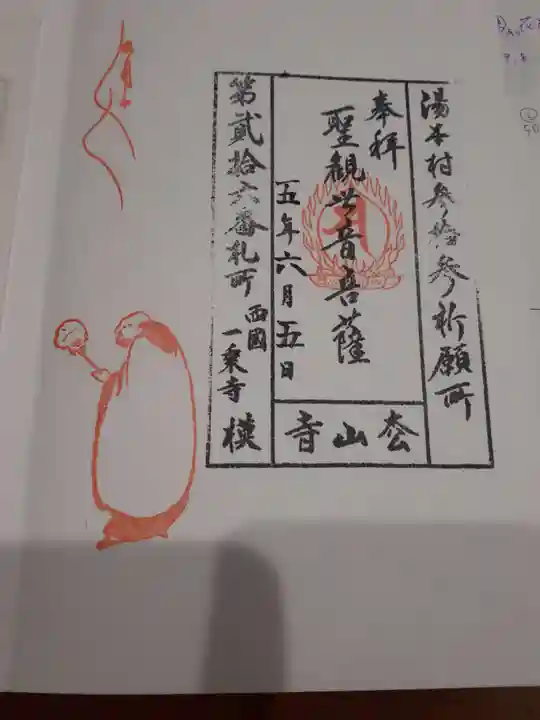 湯本村参拾参祈願所
奉拝
聖観世音菩薩
五年六月五日
第貳拾六番札所
西國
一乗寺
音山杢
模